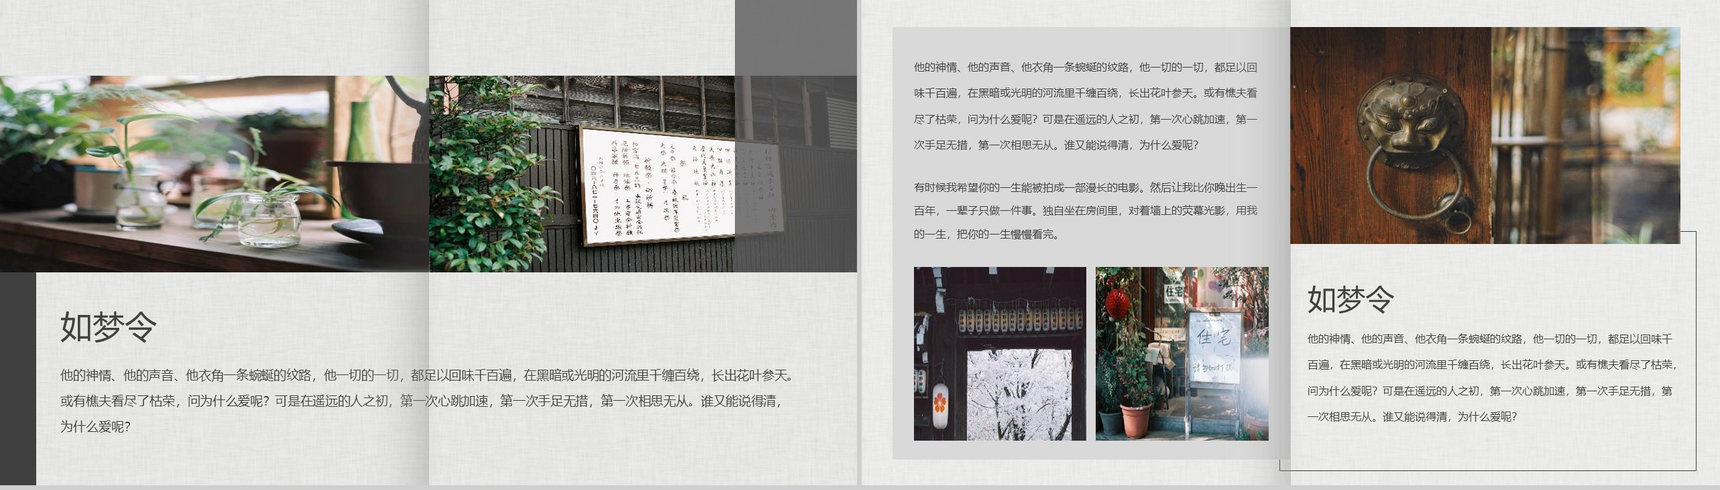 如梦令
他的神情、他的声音、他衣角一条蜿蜒的纹路，他一切的一切，都足以回味千百遍，在黑暗或光明的河流里千缠百绕，长出花叶参天。
或有樵夫看尽了枯荣，问为什么爱呢？可是在遥远的人之初，第一次心跳加速，第一次手足无措，第一次相思无从。谁又能说得清，
为什么爱呢？
他的神情、他的声音、他衣角一条蜿蜒的纹路，他一切的一切，都足以回
味千百遍，在黑暗或光明的河流里千缠百绕，长出花叶参天。或有樵夫看
尽了枯荣，问为什么爱呢？可是在遥远的人之初，第一次心跳加速，第一
次手足无措，第一次相思无从。谁又能说得清，为什么爱呢？
有时候我希望你的一生能被拍成一部漫长的电影。然后让我比你晚出生一
百年，一辈子只做一件事。独自坐在房间里，对着墙上的荧幕光影，用我
的一生，把你的一生慢慢看完。
住宅
住宅
如梦令
他的神情、他的声音、他衣角一条蜿蜒的纹路，他一切的一切，都足以回味千
百遍，在黑暗或光明的河流里千缠百绕，长出花叶参天。或有樵夫看尽了枯荣，
问为什么爱呢？可是在遥远的人之初，第一次心跳加速，第一次手足无措，第
一次相思无从。谁又能说得清，为什么爱呢？